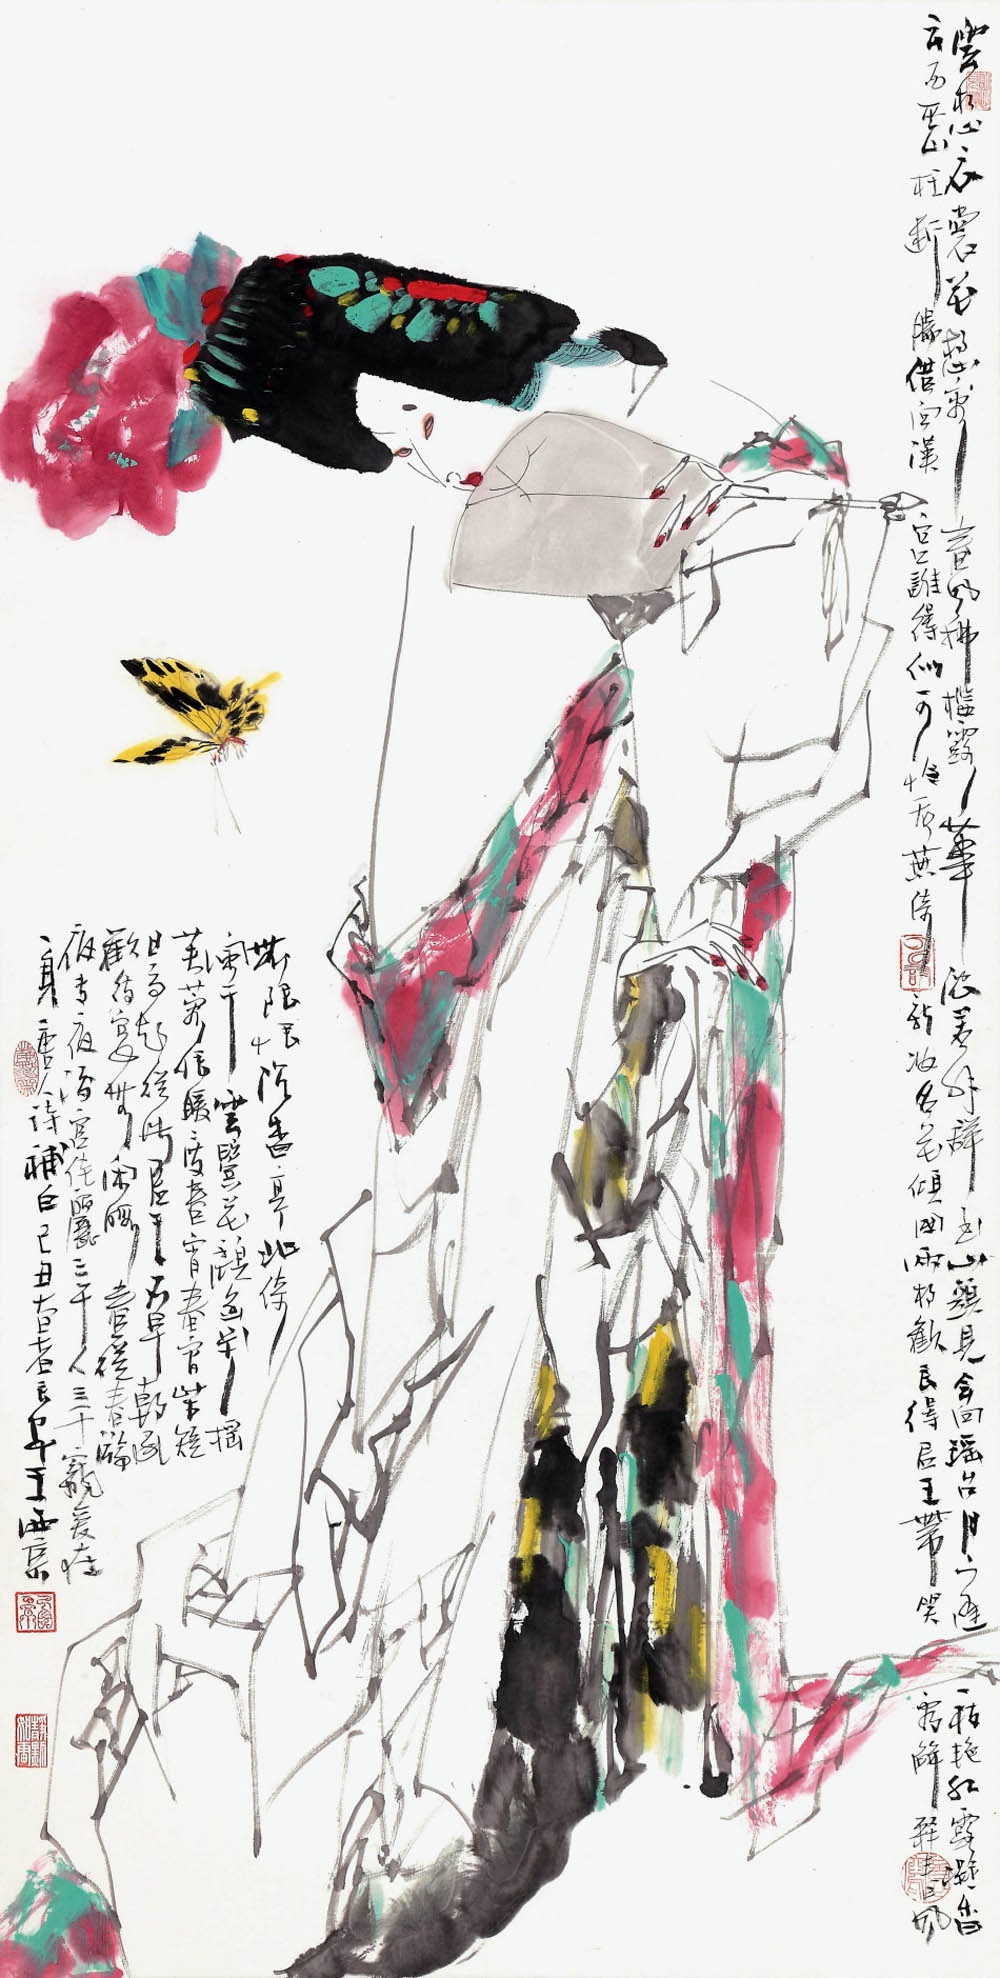 雲想衣裳花想容春風拂檻露華濃若非群玉山頭見會向瑤台月下逢一枝艳红露凝香
雲雨巫山枉斷腸借問漢宮誰得似可憐飛燕倚新妝名花傾國兩相歡長得君王帶笑看解釋春風
無限恨沉香亭北倚
闌干雲鬢花顏金步搖
芙蓉帳暖度春宵春宵苦短
日高起從此君王不早朝承
歡侍宴無閑暇春從春遊
夜專夜後宮佳麗三千人三千寵愛在
一身唐人詩補白己丑長安王西京